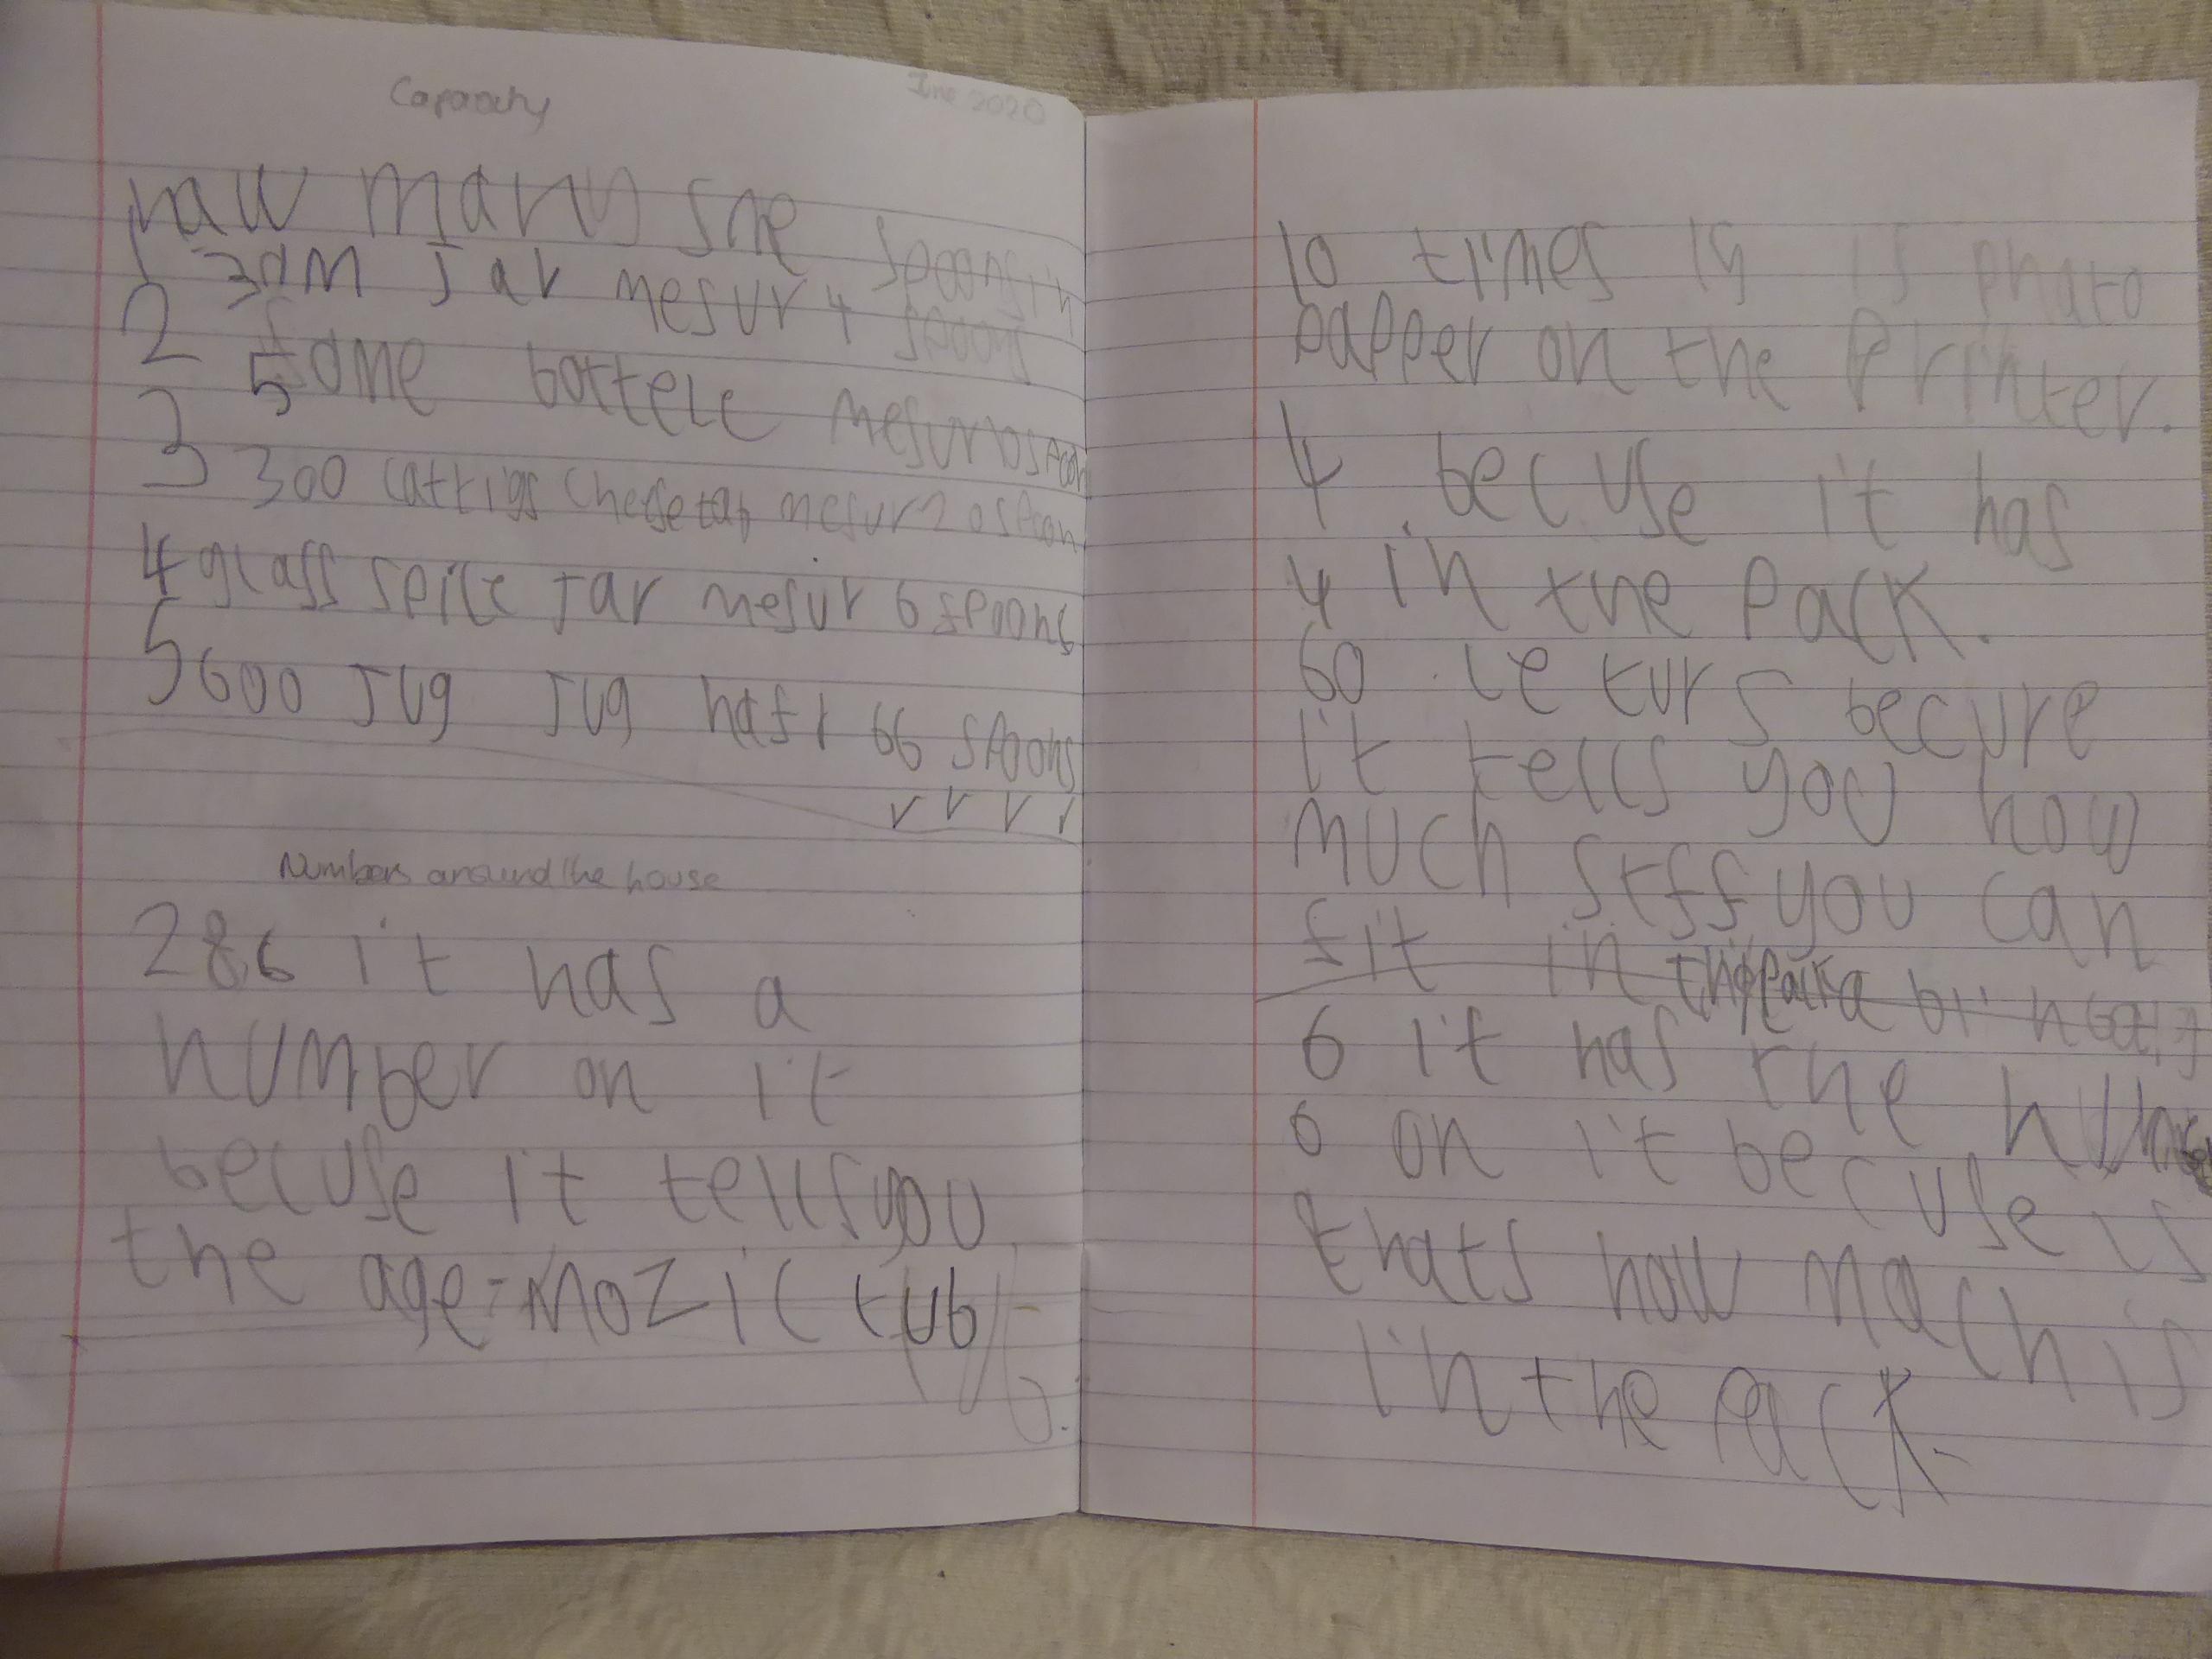 Capacity June 2020
haw many the spoons in
1 30M Jar mesur 4 spoons
2 50me bottele mesur 10 spoon
3 300 cattigs cheese tab mesur 20 spoon
4 glass spice Jar mesur 6 spoons
5 600 Jug Jug haft 66 spoons
Numbers around the house
286 it has a
number on it
becuse it tells you
the age = mozic tub
10 times 15 is phato
papper on the Printer.
4 becuse it has
4 in the Pack.
60 leturs becure
it tells you how
much stff you can
fit in the
6 it has the
6 on it becuse is
thats how mach is
in the Pack.